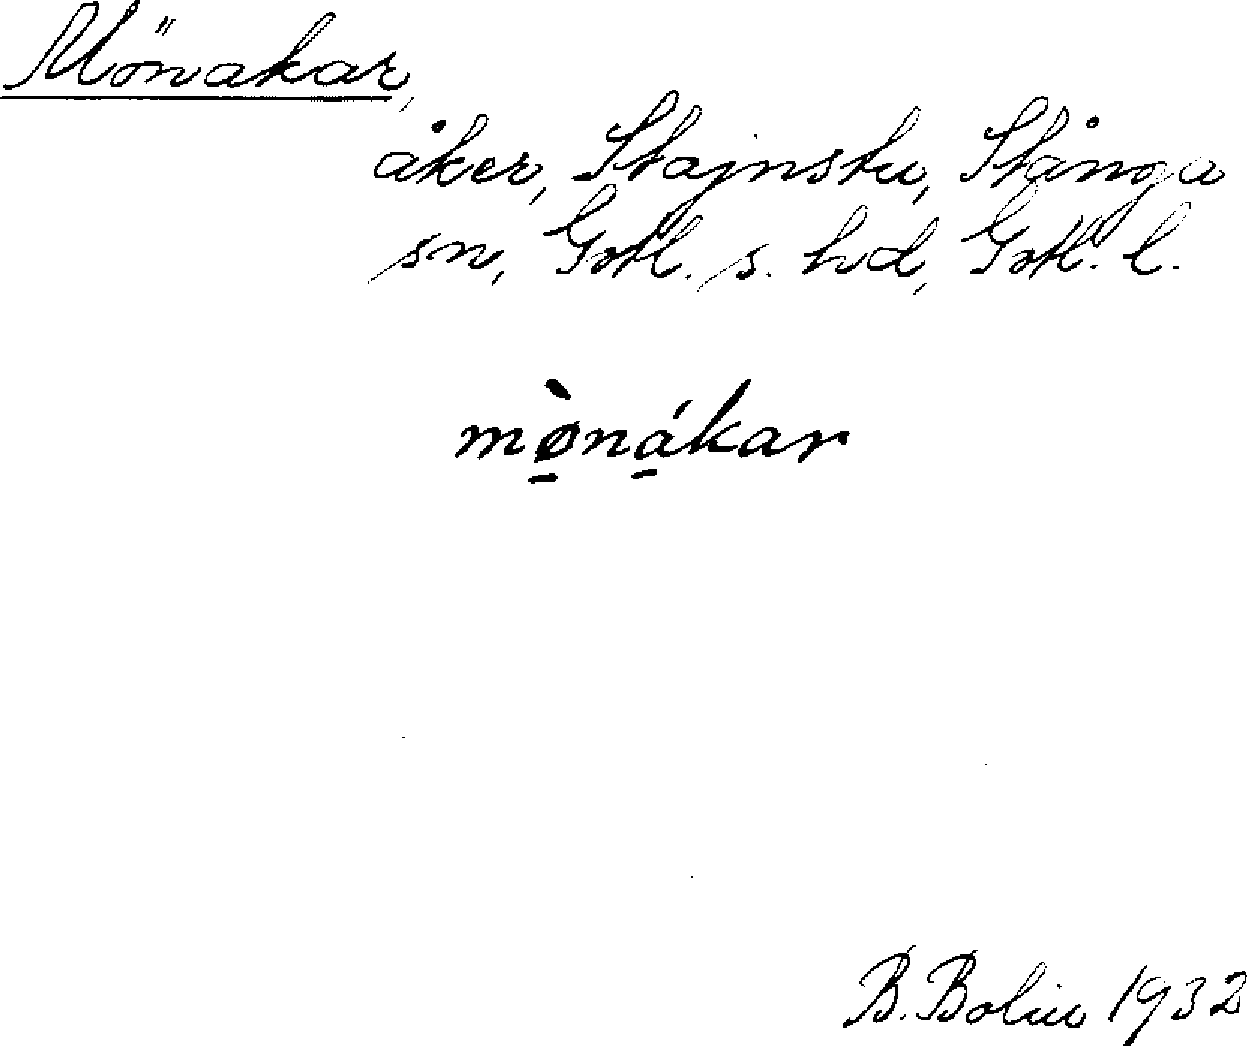 Mönakar,
åker, Stajnstu, Stånga
sn, Gotl. s. hd, Gotl. l.
mò̱ná̱kar
B. Bolin 1932